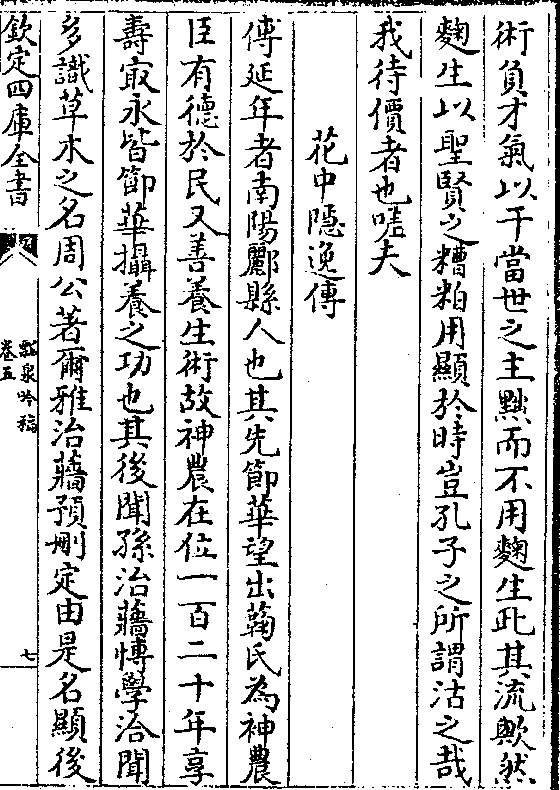 術負才氣以干當世之主黙而不用麴生此其流歟然
麴生以聖賢之糟粕用顯於時豈孔子之所謂沽之哉
我待價者也嗟夫
花中隠逸傳
傅延年者南陽酈縣人也其先節華望出蘜氏為神農
臣有德於民又善養生術故神農在位一百二十年享
壽㝡永皆節華攝養之功也其後聞孫治蘠愽學洽聞
多識草木之名周公著爾雅治蘠預刪定由是名顯後
欽定四庫全書
瓢泉吟稿
卷五
七